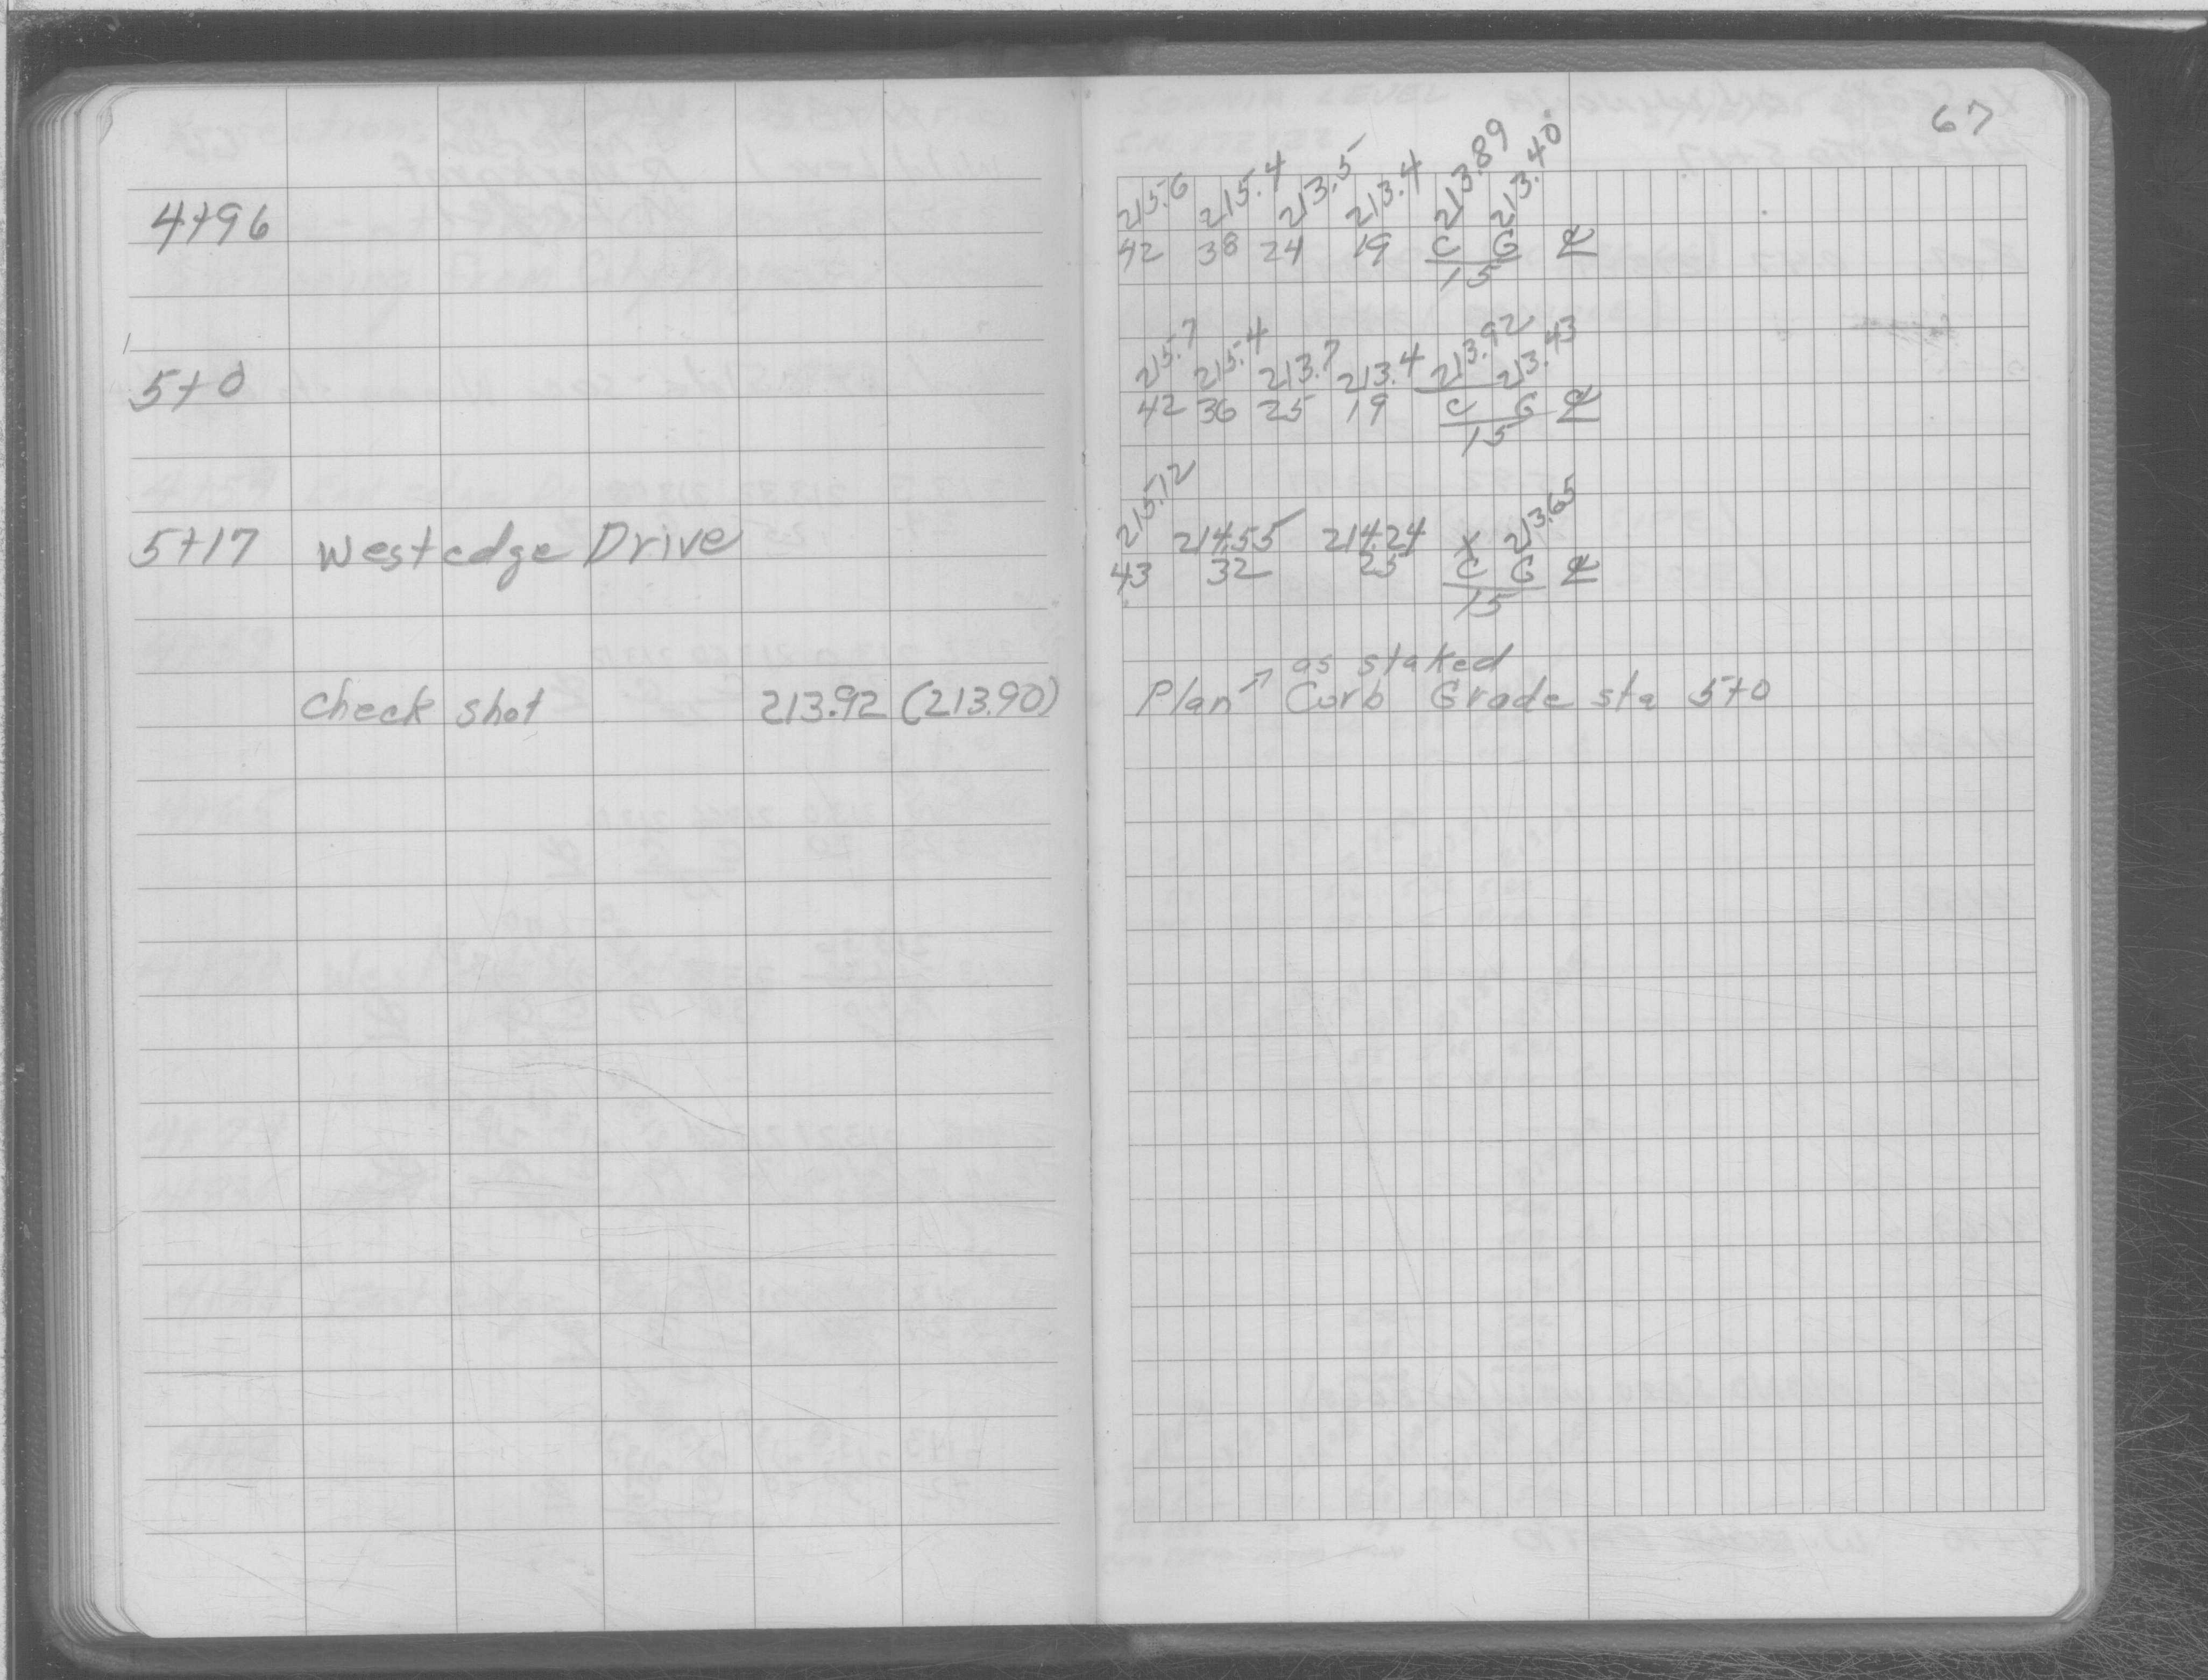 67
4+96
215.6 215.4 213.5 213.4 213.89 213.40
42 38 24 19 C G ℄
15
5+0
215.7 215.4 213.7 213.4 213.92 213.43
42 36 25 19 C G ℄
15
5+17 West edge Drive
215.12 214.55 214.24 X 213.65
43 32 25 C G ℄
15
as staked
Check shot 213.92 (213.90) Plan → Curb Grade sta 5+0